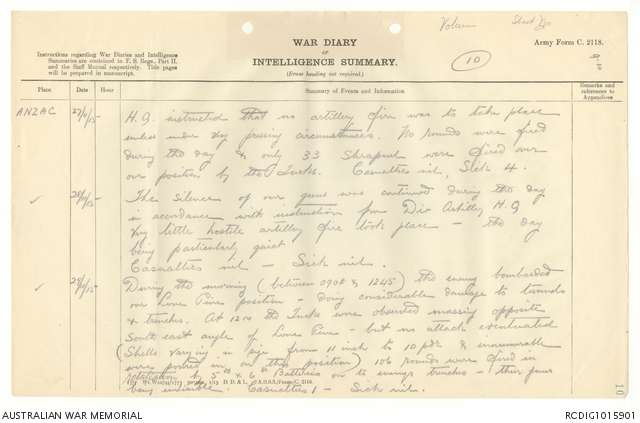 WAR DIARY
OF
INTELLIGENCE SUMMARY.
(Erase heading not required.)
Army Form C. 2118.
10
Instructions regarding War Diaries and Intelligence
Summaries are contained in F. S. Regs., Part II.
and the Staff Manual respectively. Title pages
will be prepared in manuscript.
Place
Date
Hour
Summary of Events and Information
Remarks and
references to
Appendices
ANZAC
H.Q instructed that no artillery fire was to take place
unless under very pressing circumstances. No rounds were fired
during the day & only 33 Shrapnel were fired over
our position by the Turks. Casualties nil, Sick 4.
The silence of our guns was continued during the day
in accordance with instruction from Div Artillery H.Q
Very little hostile artillery fire took place - the day
being particularly quiet
Casualties nil - Sick nil.
During the morning (between 0900 & 1245) the enemy bombarded
our Lone Pine position - doing considerable damage to tunnels
& trenches. At 1200 the Turks were observed massing opposite
South east angle of Lone Pine - but no attack eventuated
(Shells varying in size from 11 inch to 10 pdr & innumerable
were poured in on this position) 106 rounds were fired in
retaliation by 5th & 6th Batteries on to enemys trenches - their guns
being invisible. Casualties 1 - Sick nil.
AUSTRALIAN WAR MEMORIAL
RCDIG1015901